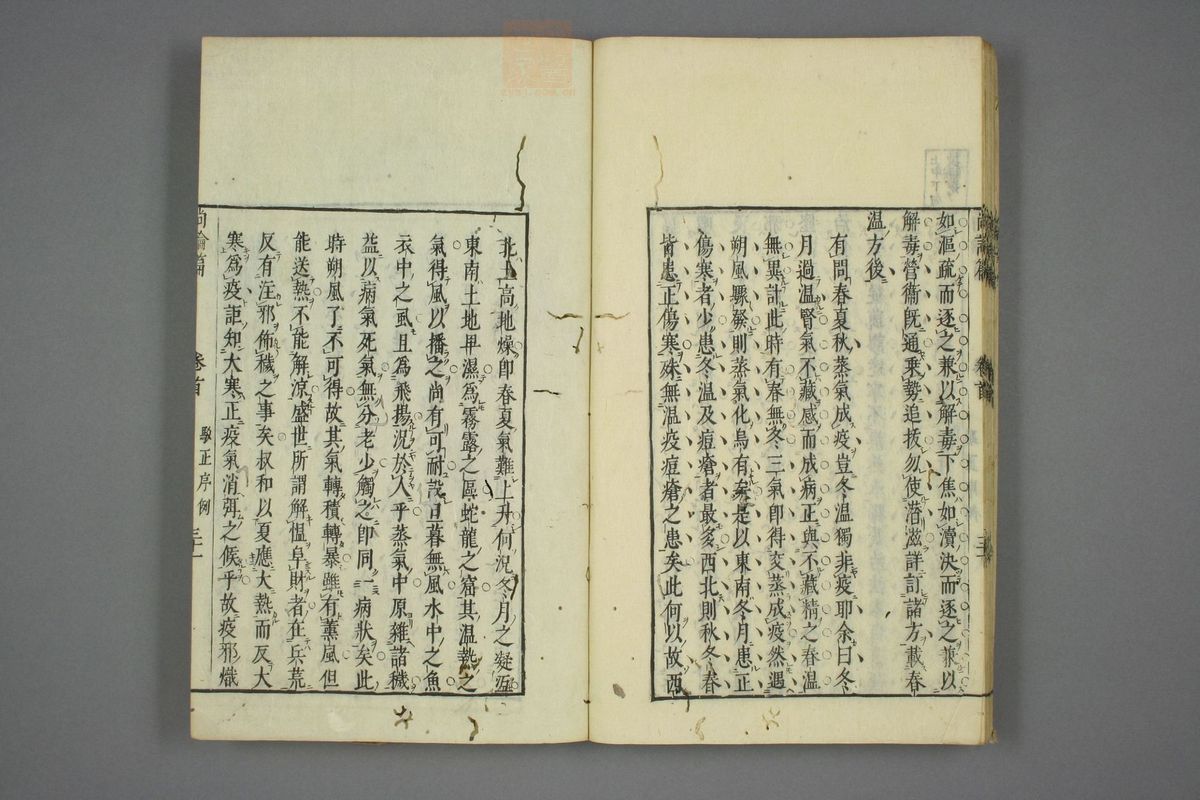 如漚疏而逐之兼以解毒下焦如瀆決而逐之兼以
解毒營衛既通乗勢追拔勿使潜滋詳訂諸方載春
温方後
有問春夏秋蒸氣成疫豈冬温獨非疫耶余曰冬
月過温腎氣不藏感而成病正與不藏精之春温
無異計此時有春無冬三氣即得交蒸成疫然遇
朔風驟發則蒸氣化烏有矣是以東南冬月患正
傷寒者少患冬温及痘瘡者最多西北則秋冬春
皆患正傷寒殊無温疫痘瘡之患矣此何以故西
北土高地燥即春夏氣難上升何況冬月之凝沍
東南土地卑濕為霧露之區蛇龍之窟其温熱之
氣得風以播之尚有可耐設旦暮無風水中之魚
衣中之虱且為飛揚況於人乎蒸氣中原雜諸穢
益以病氣死氣無分老少觸之即同一病狀矣此
時朔風了不可得故其氣轉積轉暴雖有薰風但
能送熱不能解涼盛世所謂解愠阜財者在兵荒
反有注邪佈穢之事矣叔和以夏應大熱而反大
寒為疫詎知大寒正疫氣消弭之候乎故疫邪熾
尚論篇
卷首
駁正序例